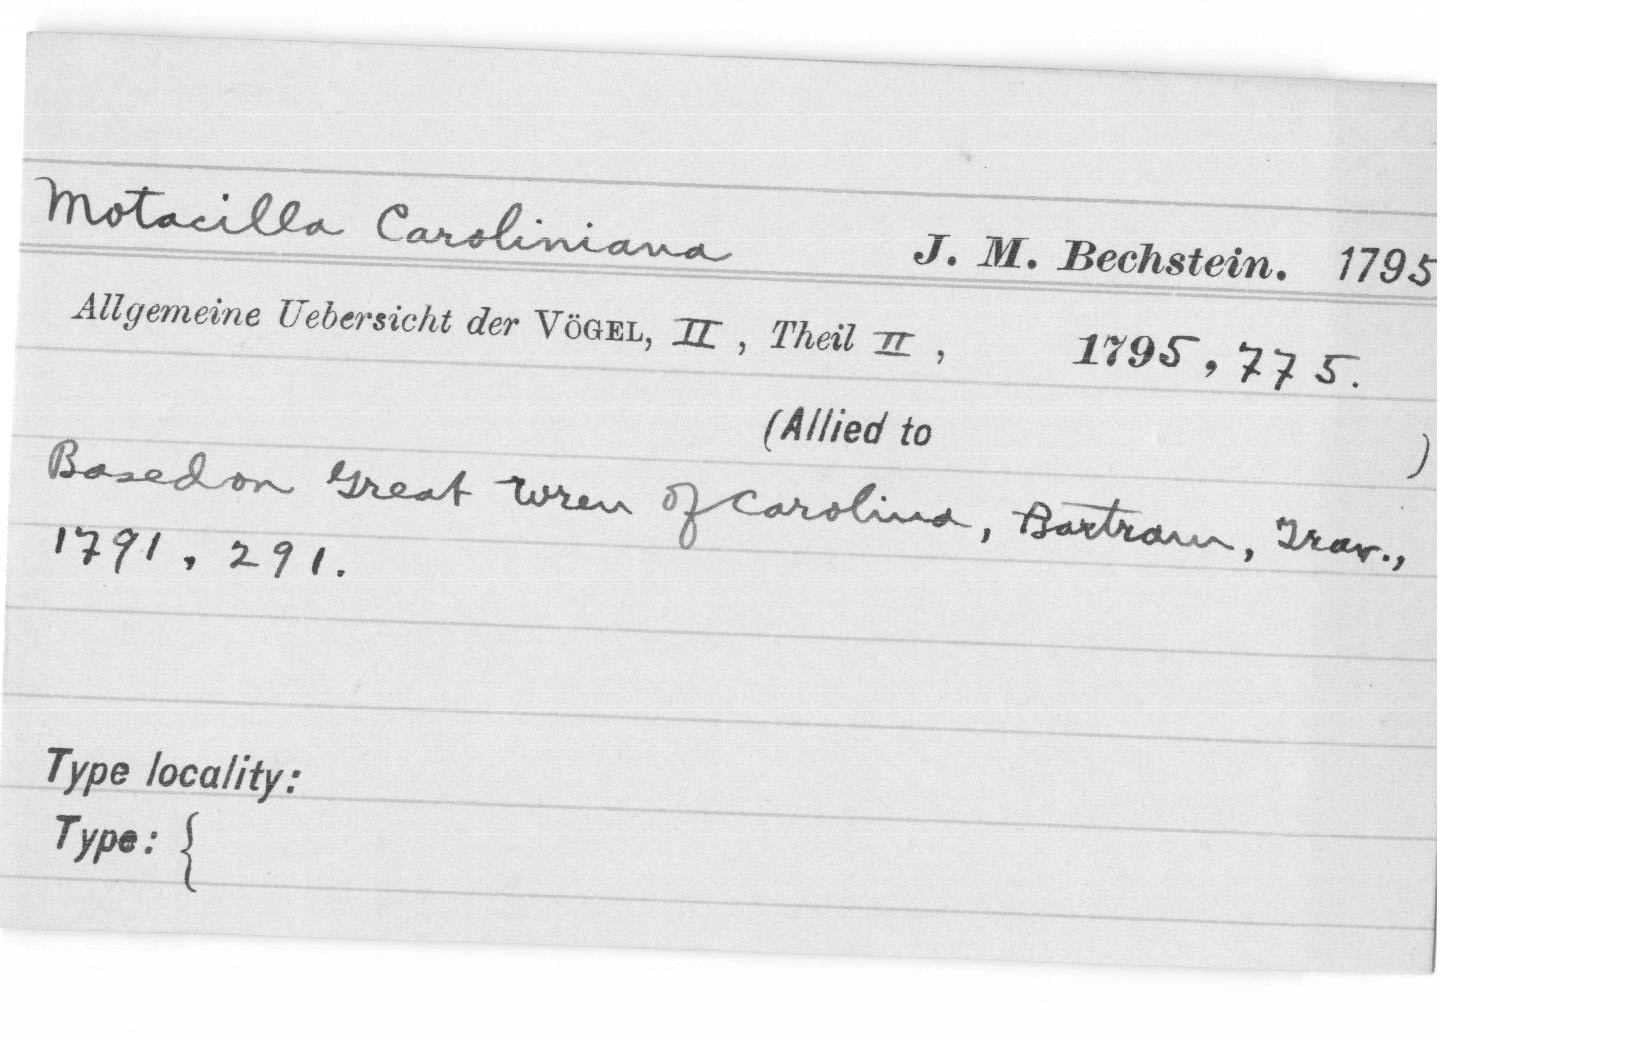 Motacilla Caroliniana J. M. Bechstein. 1795
Allgemeine Uebersicht der VÖGEL, II, Theil II, 1795, 775.
(Allied to )
Based on Great Wren of Carolina, Bartram, Trav.,
1791, 291.
Type locality:
Type: {